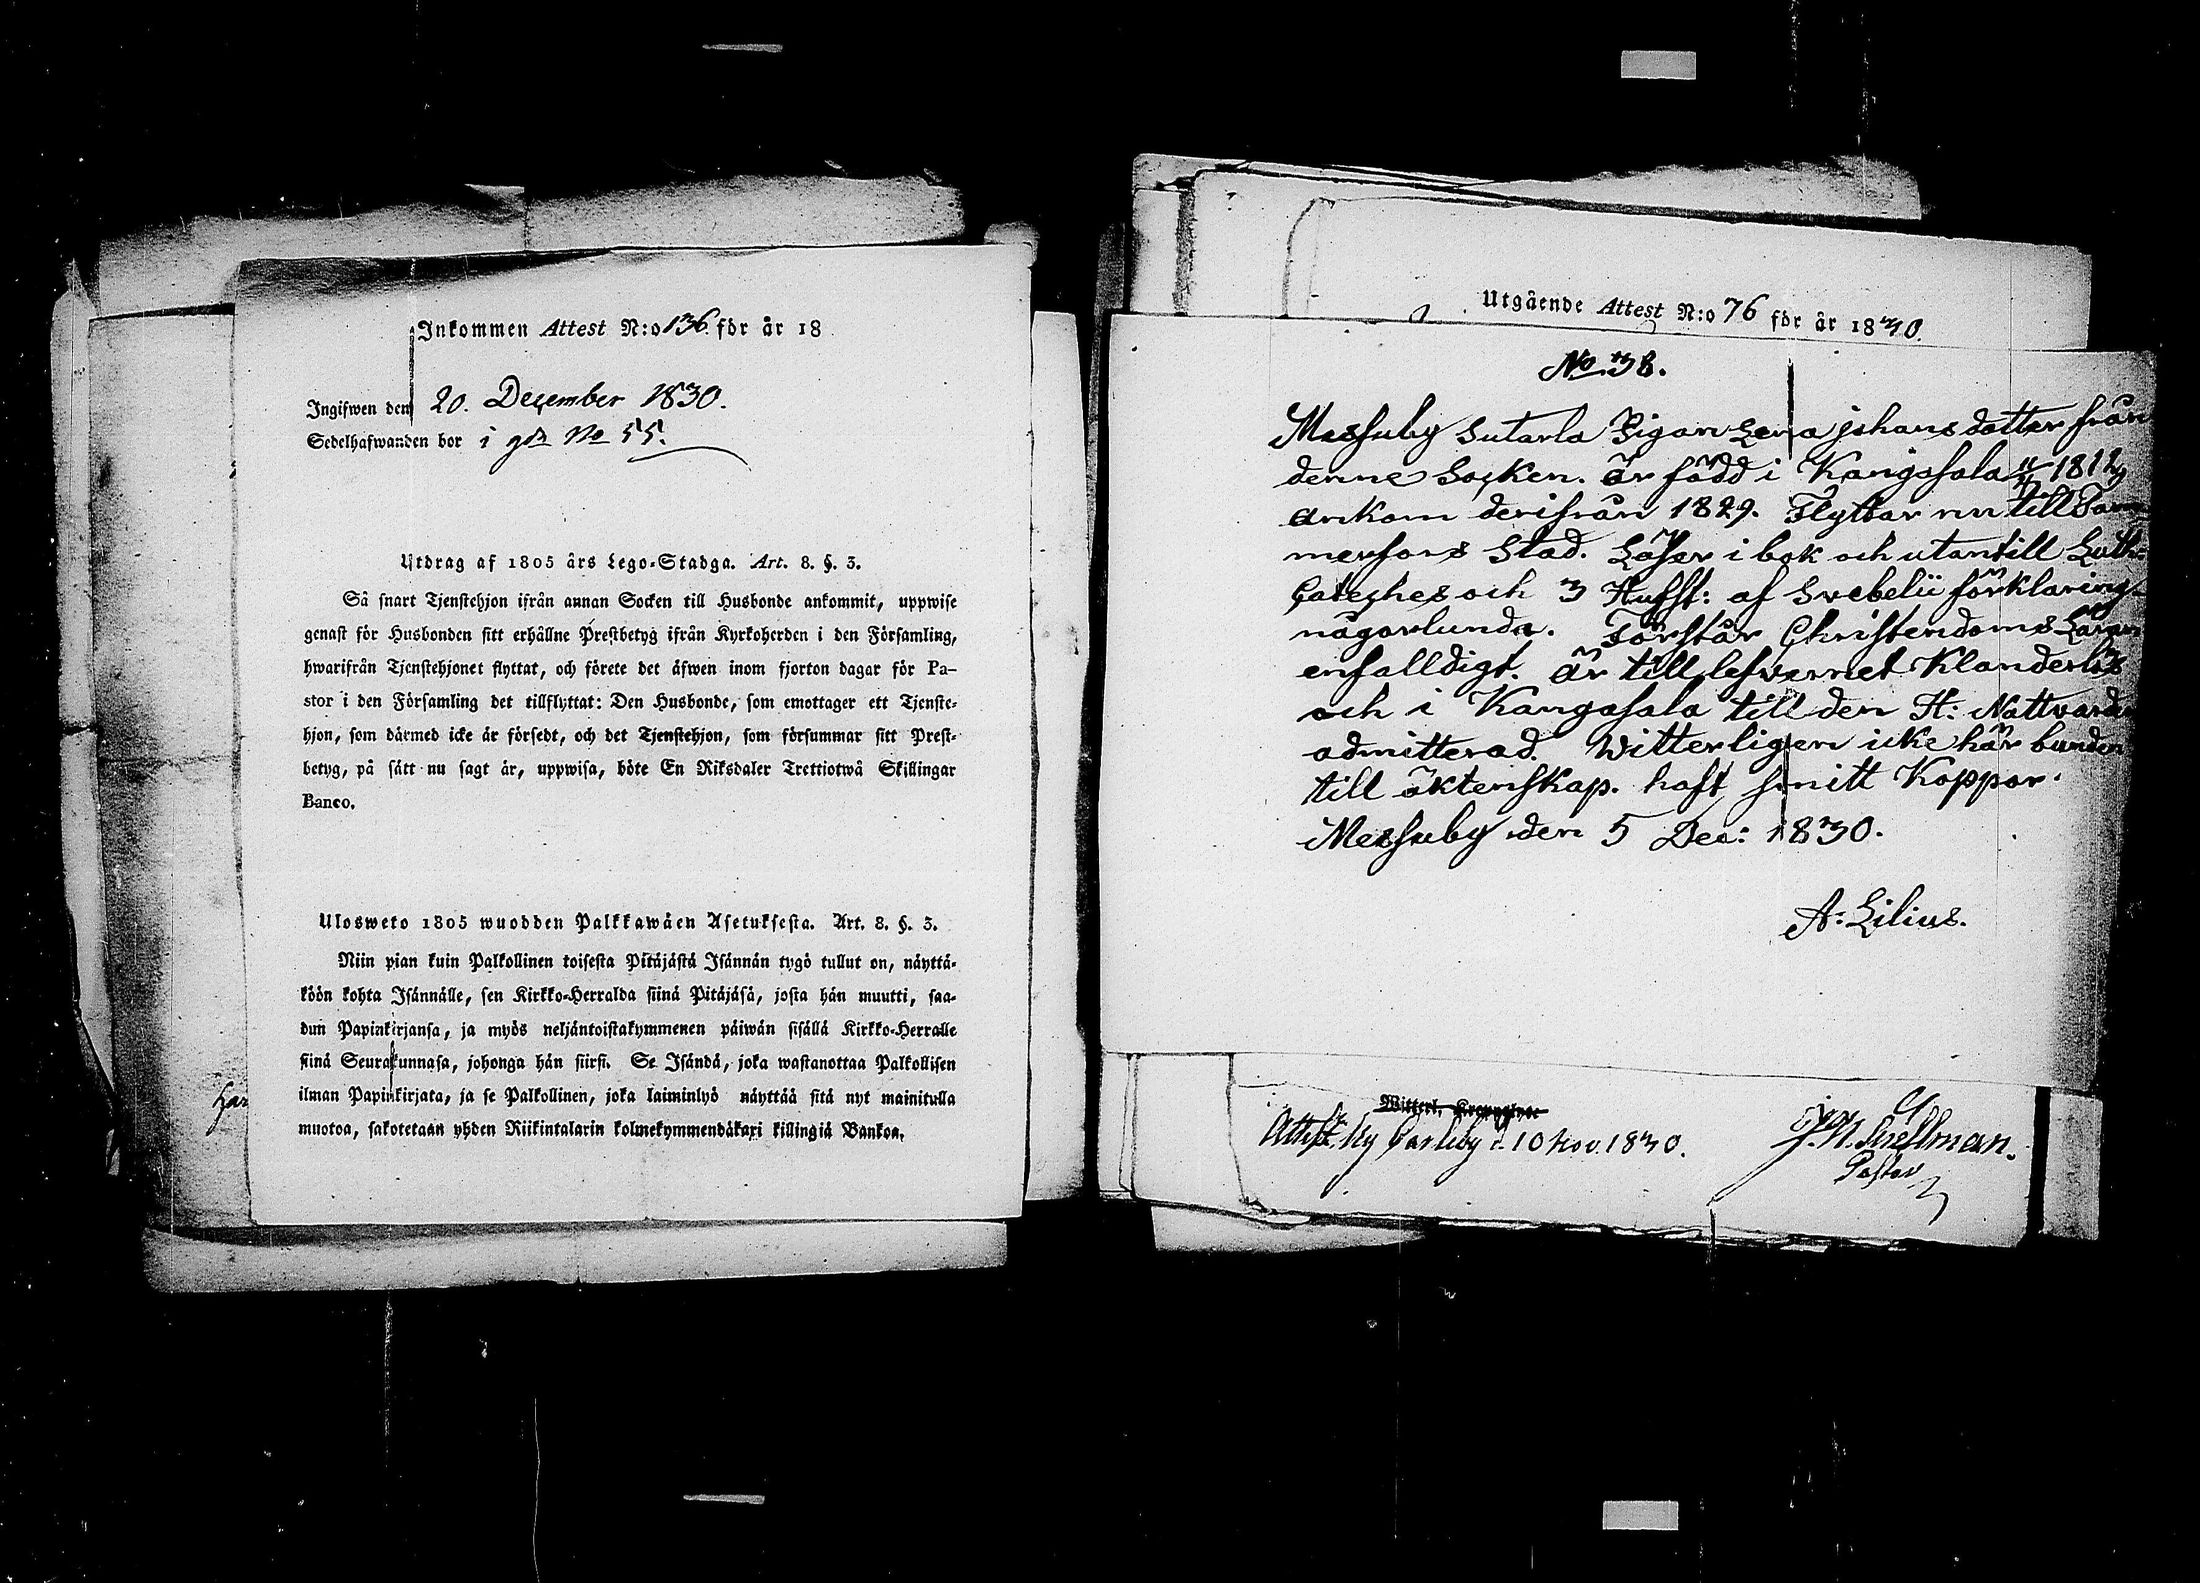 Inkommen Attest N:o 136. för år 18
Ingifwen den 20. December 1830.
Sedelhafwanden bor i gdn No 55.
Utdrag af 1805 års Lego-Stadga. Art. 8. §. 3.
Så snart Tjenstehjon ifrån annan Socken till Husbonde ankommit, uppwise
genast för Husbonden sitt erhållne Prestbetyg ifrån Kyrkoherden i den Församling,
hwarifrån Tjenstehjonet flyttat, och förete det äfwen inom fjorton dagar för Pa-
stor i den Församling det tillflyttat: Den Husbonde, som emottager ett Tjenste-
hjon, som därmed icke är försedt, och det Tjenstehjon, som försummar sitt Prest-
betyg, på sätt nu sagt är, uppwisa, böte En Riksdaler Trettiotwå Skillingar
Banco.
Ulosweto 1805 wuodden Palkkawäen Asetuksesta. Art. 8. §. 3.
Niin pian kuin Palkollinen toisesta Pitäjästä Isännän tygö tullut on, näyttä-
köön kohta Isännälle, sen Kirkko-Herralda siinä Pitäjäsä, josta hän muutti, saa-
dun Papinkirjansa, ja myös neljäntoistakymmenen päiwän sisällä Kirkko-Herralle
siinä Seurakunnasa, johonga hän siirsi. Se Isändä, joka wastanottaa Palkollisen
ilman Papinkirjata, ja se Palkollinen, joka laiminlyö näyttää sitä nyt mainitulla
muotoa, sakotetaan yhden Riikintalarin kolmekymmendäkaxi killingiä Bankoa.
Har
Utgående Attest N:o 76 för år 1830.
No 38.
Messuby Sutarla Pigan Lena Johansdotter från
denne Socken. är född i Kangasala 11/ 1812
ankom derifrån 1829. Flyttar nu till Tam
merfors Stad. Läser i bok och utantill Luth:
Cateches och 3 Hufst: af Svebelii förklaring
någorlunda. Förstår Christendoms Läran
enfalldigt. är till lefvernet Klanderlös
och i Kangasala till den H: Nattvarden
admitterad. Witterligen icke här bunden
till äktenskap. haft smitt Koppor.
Messuby den 5 Dec: 1830.
A: Lilius.
Witterl.
Attest. Ny Carleby d. 10 Nov. 1830.
J. N. Snellman.
Pastor